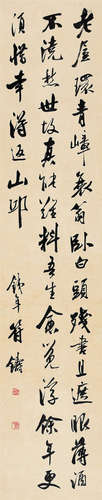 老屋環青嶂衰翁臥白頭殘書且遮眼薄酒
不澆愁世故真難料吾生愈覺浮餘年更
須惜幸得返山邱
鐵年符鑄